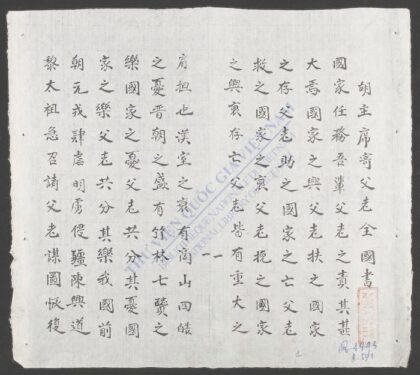 胡主席寄父老全國書
國家任務吾輩父老之責其甚
大焉國家之興父老扶之國家
之存父老助之國家之亡父老
救之國家之衰父老挽之國家
之興衰存亡父老皆有重大之
肩担也漢室之衰有商山四皓
之憂晉朝之盛有竹林七賢之
樂國家之憂父老共分其憂國
家之樂父老共分其樂我國前
朝元戎肆虐明虜侵疆陳興道
黎太祖急召請父老謀國恢復
THƯ VIỆN QUỐC GIA VIỆT NAM